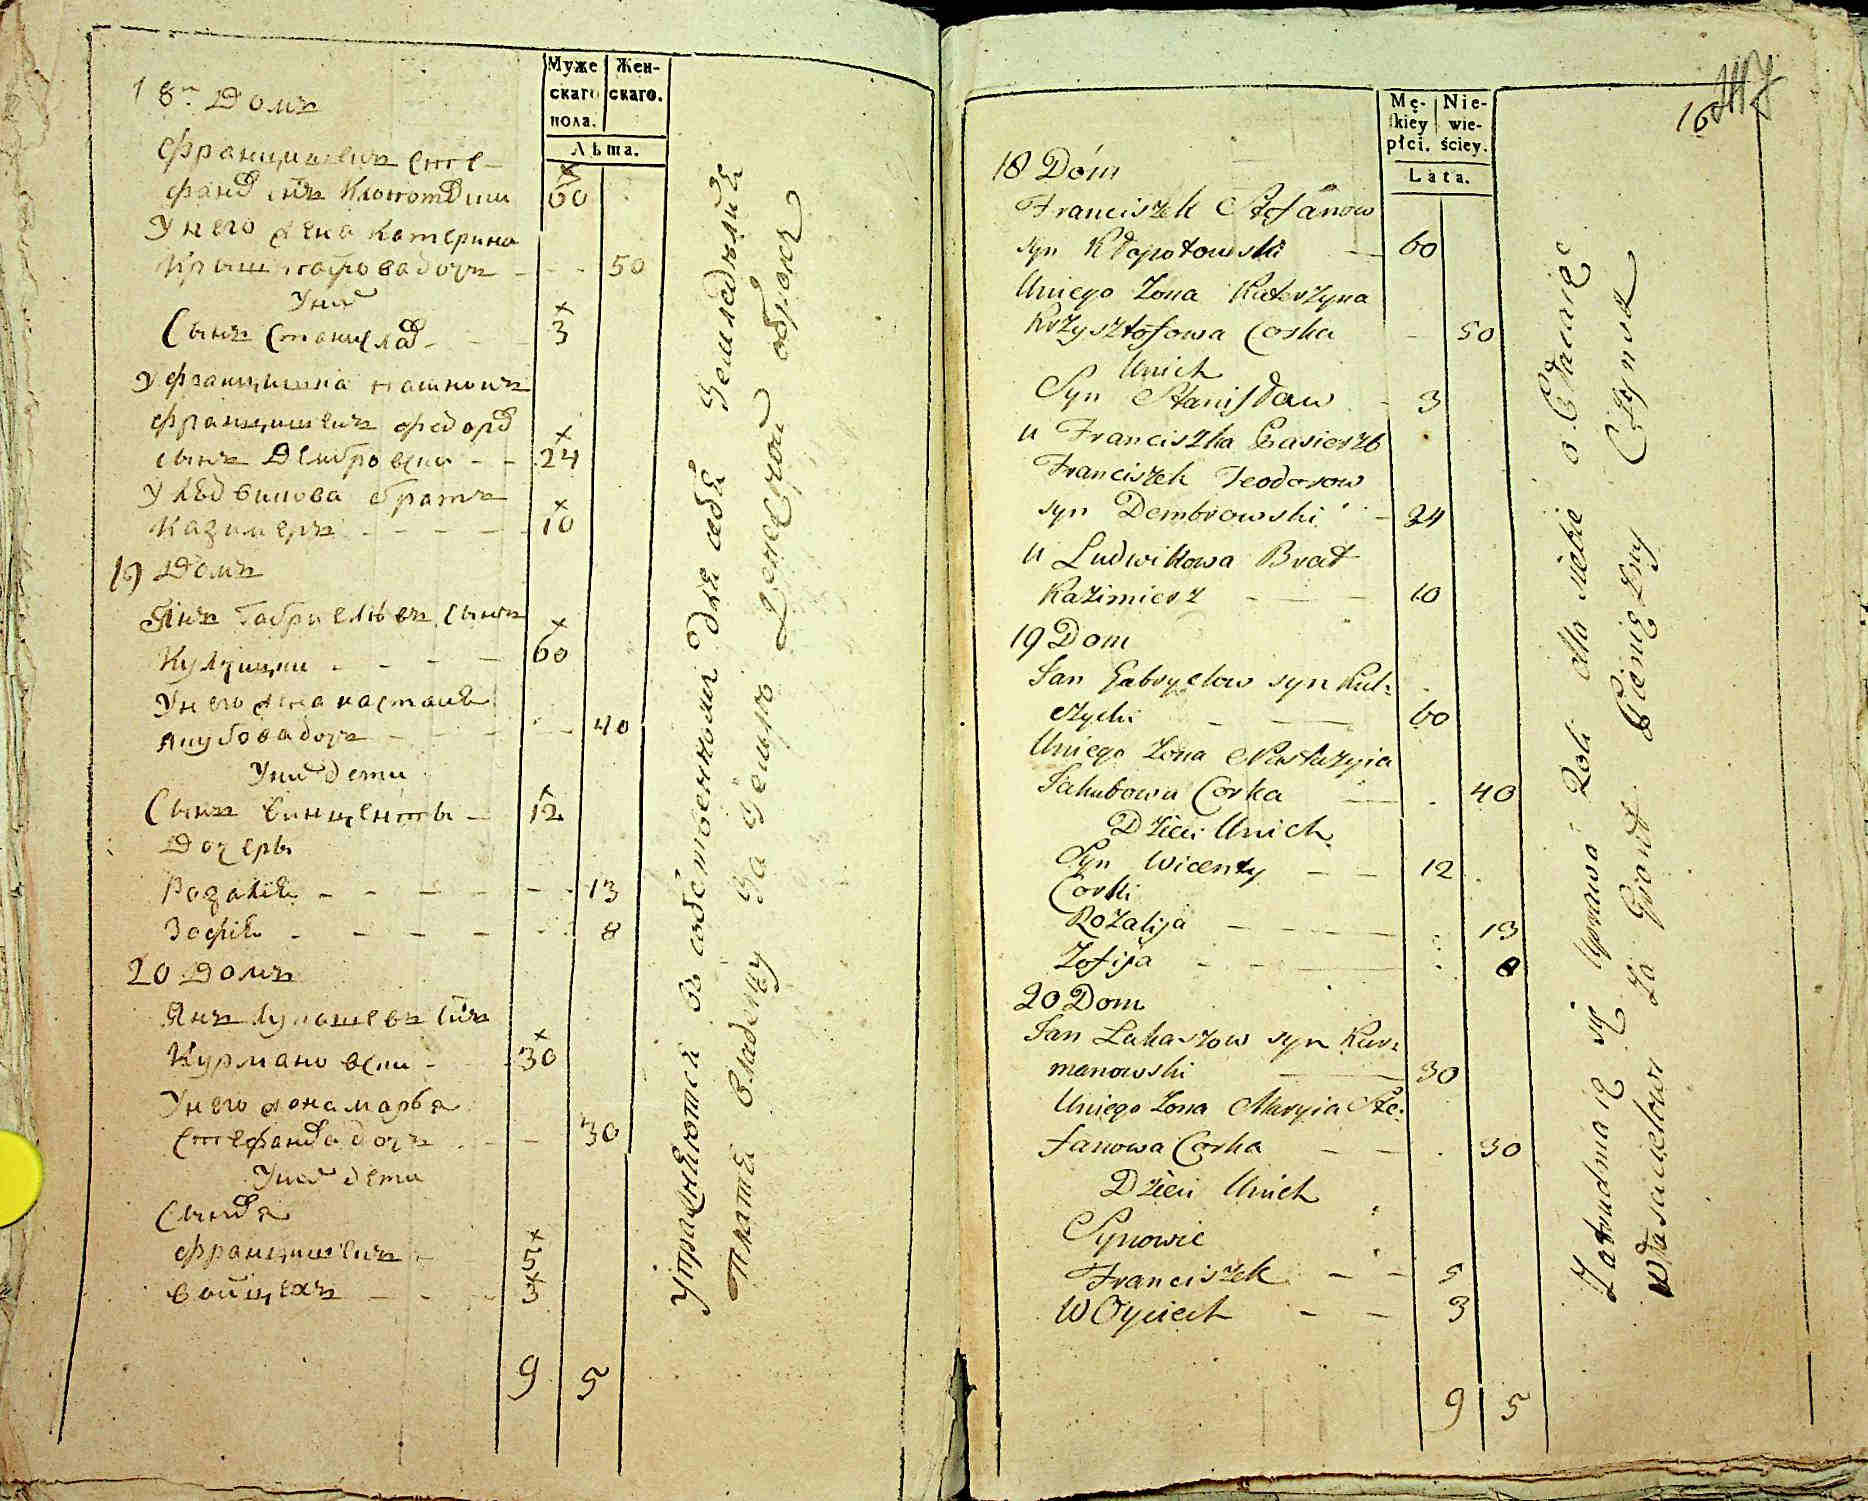 Муже
скаго
пола.
Жен-
скаго.
Лѣта.
18й Домъ
Францишекъ Сте-
фанов снъ Клопотовски 60
У него жена Катерина
Крыштофова дочъ - - - 50
У них
Сынъ Станислав - - 3
У Францишка пасынокъ
Францишекъ Федоров
сынъ Дембровски - - 24
У Людвикова братъ
Казимеръ - - - - 10
19 Домъ
Янъ Габриелевъ сынъ
Кулчицки - - - - 60
У него жена Настасия
Якубова дочъ - - - 40
У них дети
Сынъ Винценты - 12
Дочеры
Розалія - - - - - 13
Зофія - - - - - 8
20 Домъ
Янъ Лукашевъ снъ
Курмановски - 30
У него жона Марья
Стефанова дочъ - - 30
У них дети
Сыновя
Францишекъ - 5
Войцехъ - - - 3
9 5
Упражняются в собственном для себя земледелии
Платя владелцу за землю денежной оброкъ
16
Mę-
skiey
płci.
Nie-
wie-
ściey.
Lata.
18 Dóm
Franciszek Stefanow
syn Kłopotowski — 60
Uniego Zona Katerzyna
Krzysztofowa Corka - 50
Unich
Syn Stanisław - 3
u Franciszka Pasierzb
Franciszek Teodorow
syn Dembrowski - 24
u Ludwikowa Brat
Kazimierz - - - 10
19 Dom
Jan Gabryelow syn Kul-
czycki - - - 60
Uniego Zona Nastazyia
Jakubowa Corka - . 40
Dzieci Unich
Syn Wicenty - - 12
Corki
Rozalija - - - - 13
Zofija - - - 8
20 Dom
Jan Lukaszow syn Kur-
manowski — 30
Uniego Zona Maryia Ste-
fanowa Corka - - . 30
Dzieci Unich
Synowie
Franciszek - - 5
Woyciech - - 3
9 5
Zatrudniaią się uprawą Roli dla siebie a Płacąięc
Własacielowi Za Grunt Pieniężny Czynsz